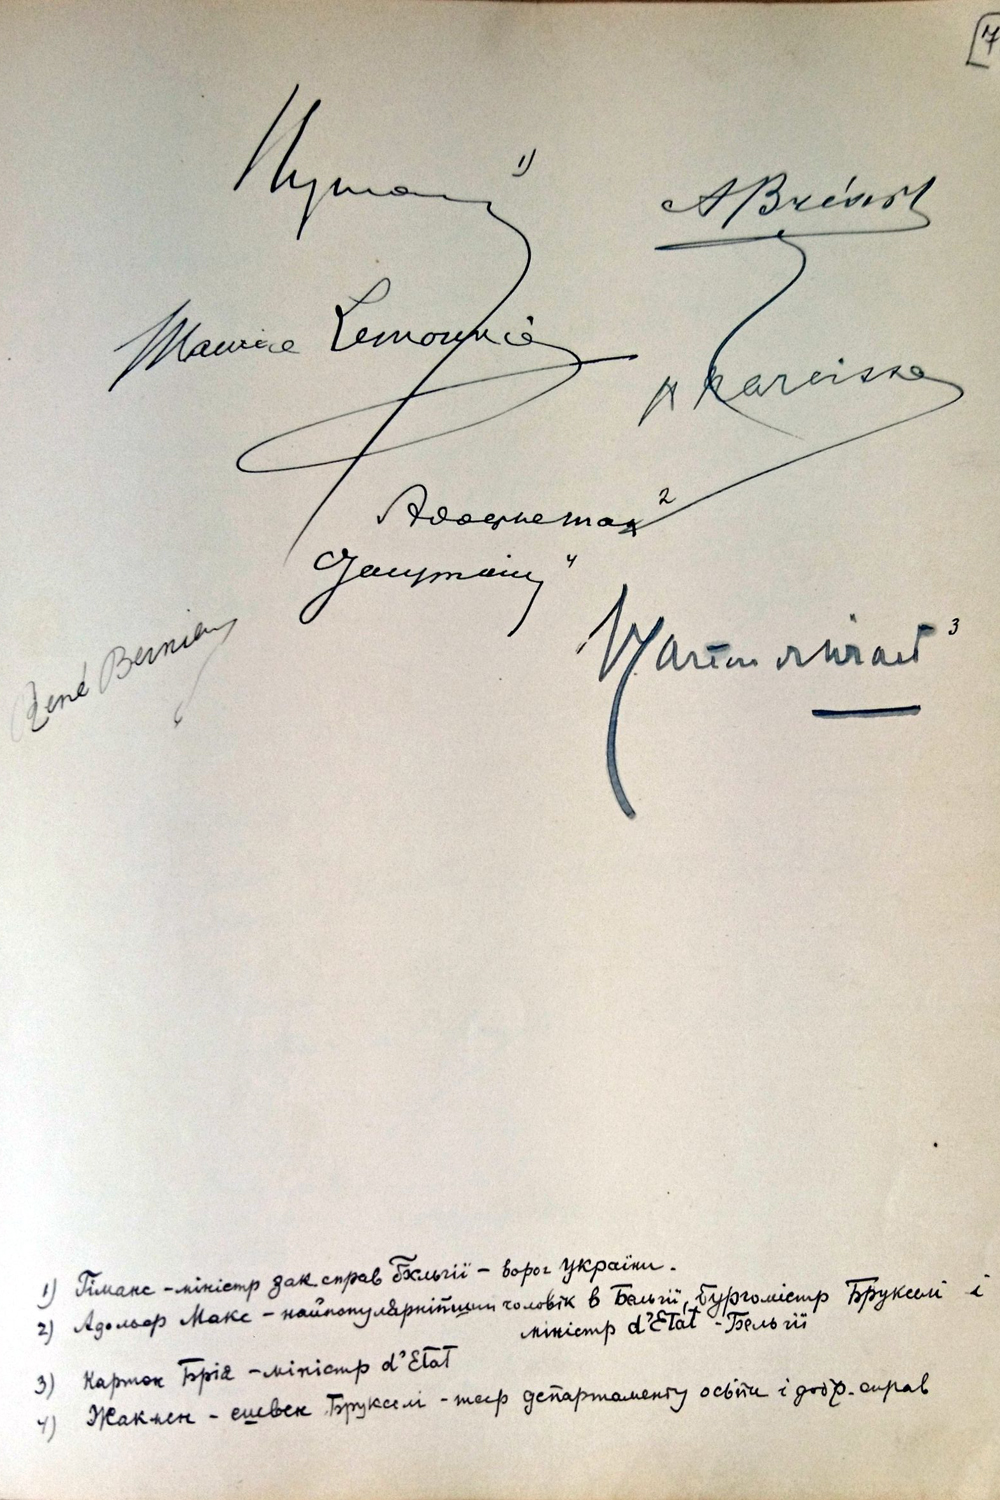 7
Hymans 1)
Maurice Lemonnier
Adolphe Max 2
Jacqmain 4
René Bernier
3
1) Гіманс - міністр зак. справ Бельгії - ворог України.
2) Адольф Макс - найпопулярнійший чоловік в Бельгії, бургомістр Брукселі і
міністр d'Etat - Бельгії
3) Картон Бріа - міністр d'Etat
4) Жакмен - ешевен Брукселі - шеф департаменту освіти і добр. справ